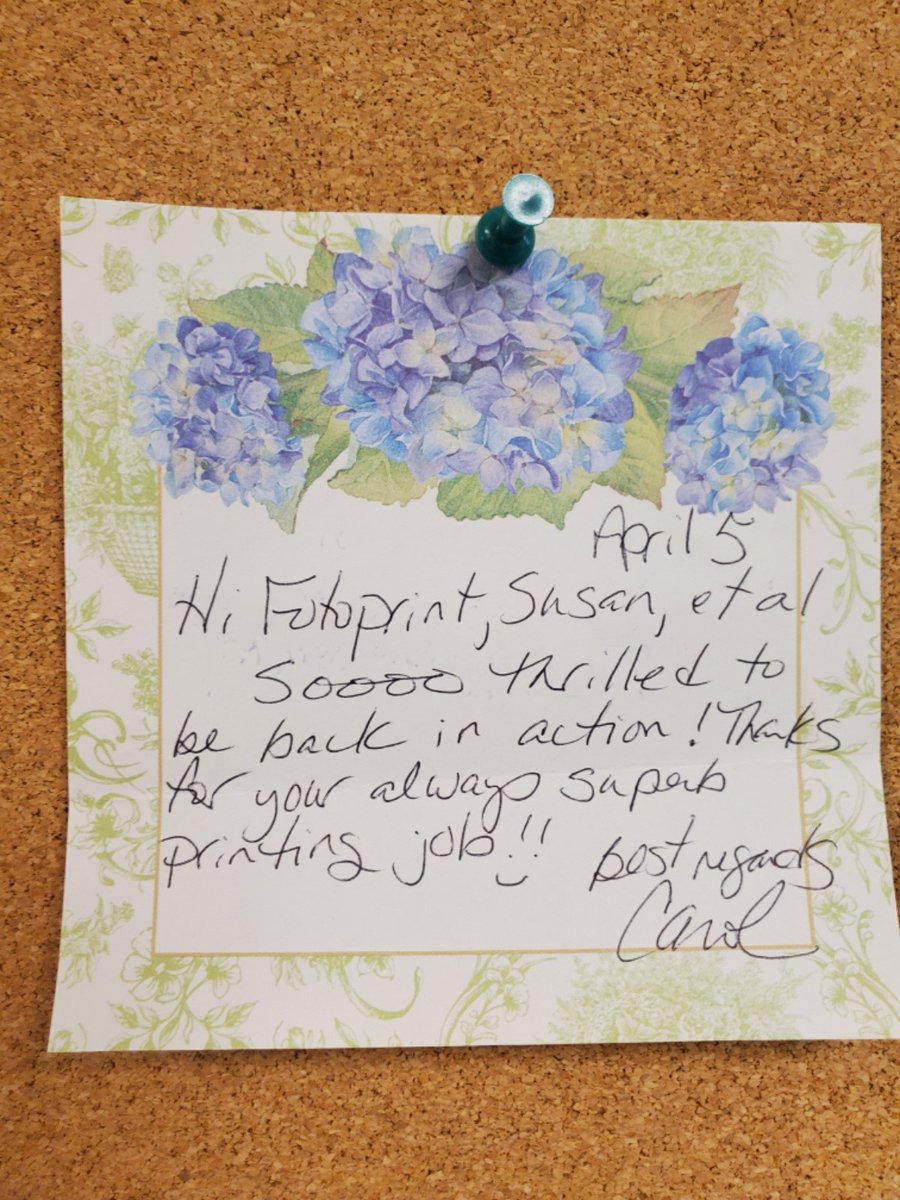 April 5
Hi Fotoprint, Susan, et al
Soooo thrilled to
be back in action! Thanks
for your always superb
printing job!!
best regards
Carol